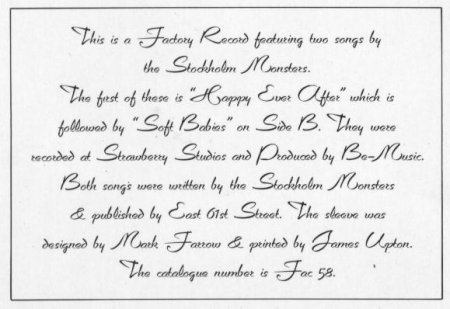 This is a Factory Record featuring two songs by
the Stockholm Monsters.
The first of these is "Happy Ever After" which is
followed by "Soft Babies" on Side B. They were
recorded at Strawberry Studios and Produced by Be-Music.
Both songs were written by the Stockholm Monsters
& published by East 61st Street. The sleeve was
designed by Mark Farrow & printed by James Upton.
The catalogue number is Fac 58.